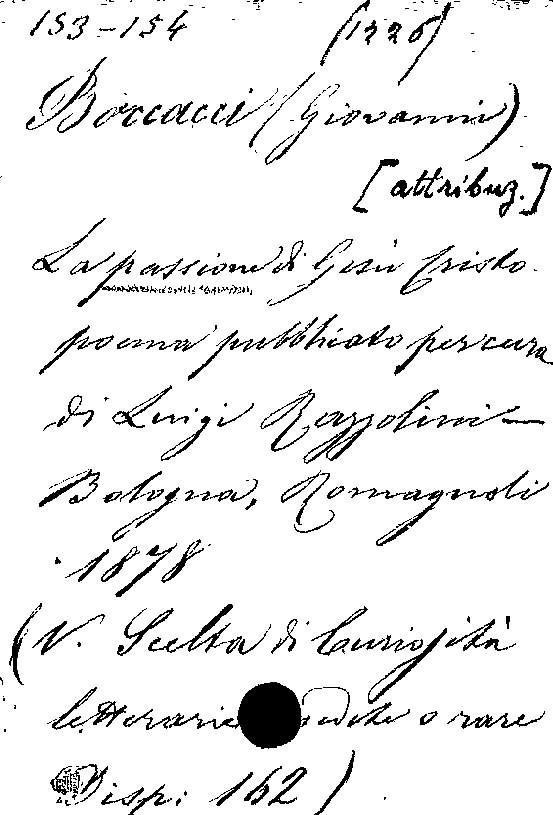 153-154 (1226)
Boccacci (Giovanni)
[attribuz.]
La passione di Gesù Cristo
poema pubblicato per cura
di Luigi Razzolini —
Bologna, Romagnoli
1878
(V. Scelta di Curiosità
letterarie o rare
Disp: 162)